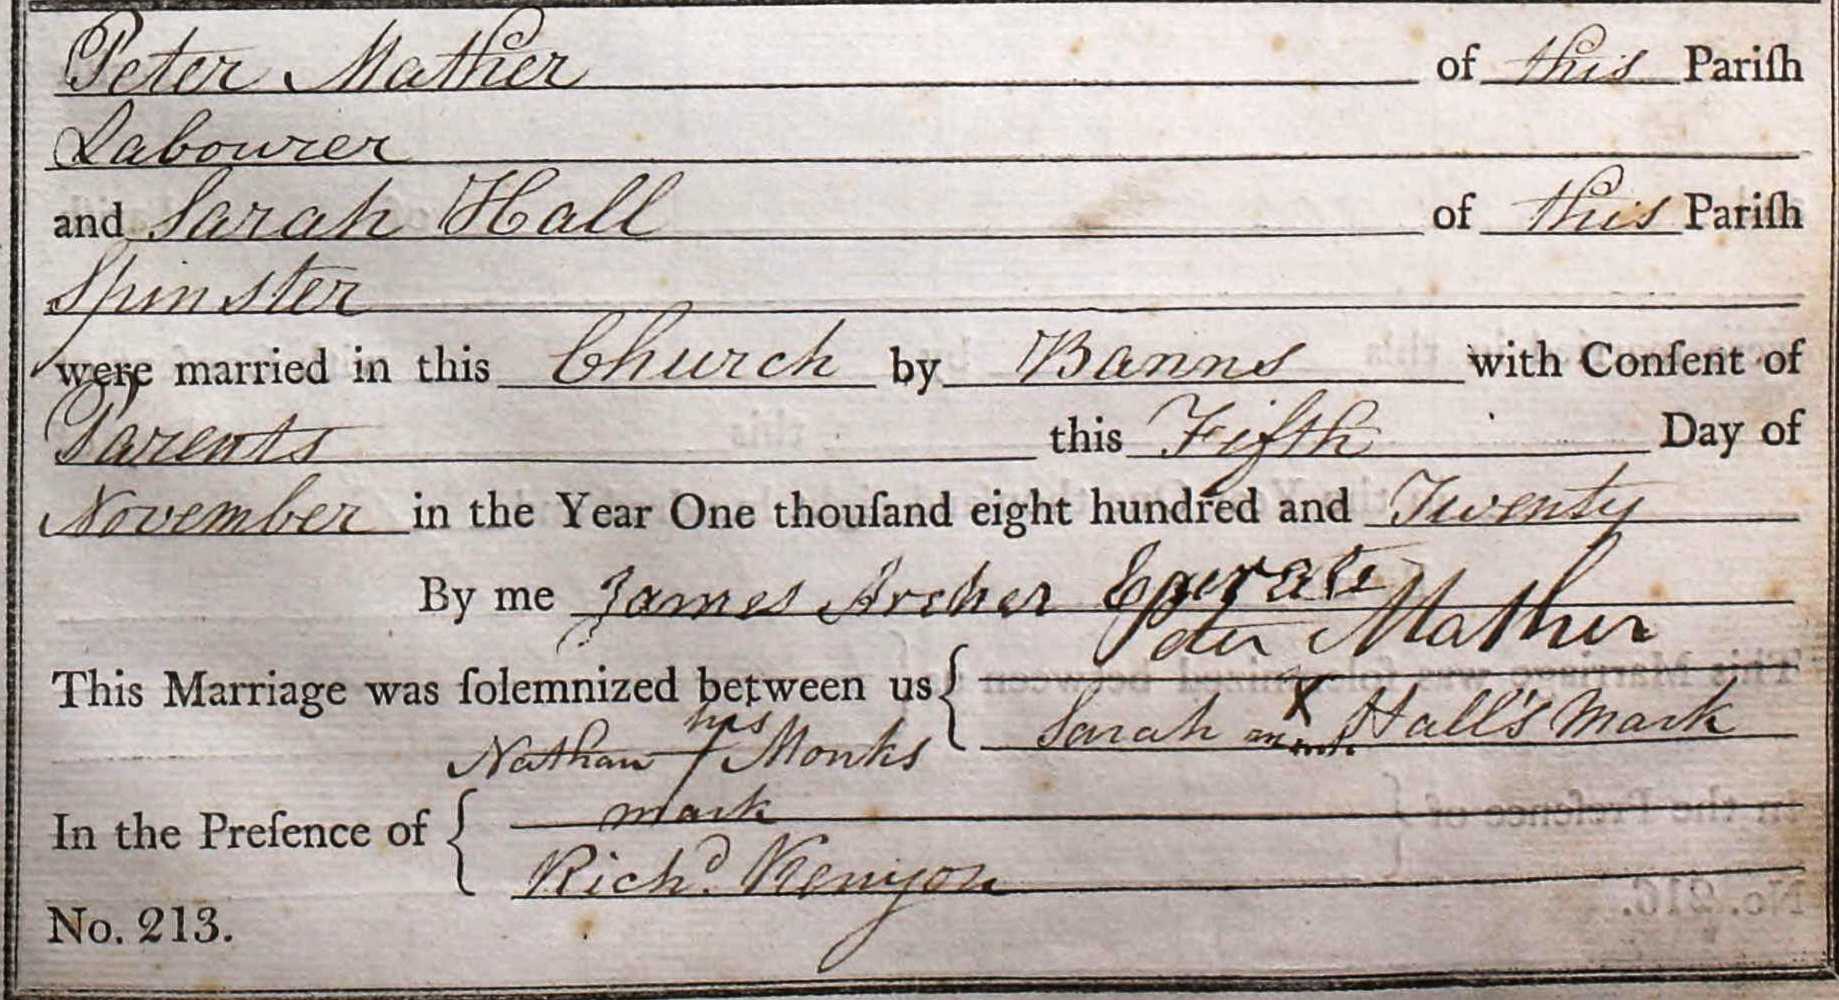 Peter Mather of this Pariſh
Labourer
and Sarah Hall of this Pariſh
Spinster
were married in this Church by Banns with Conſent of
Parents this Fifth Day of
November in the Year One thouſand eight hundred and Twenty
By me James Archer Curate
Peter Mather
This Marriage was ſolemnized between us {
Sarah X Hall's mark
his
Nathan Monks
mark
In the Preſence of {
Richd. Kenyon
No. 213.